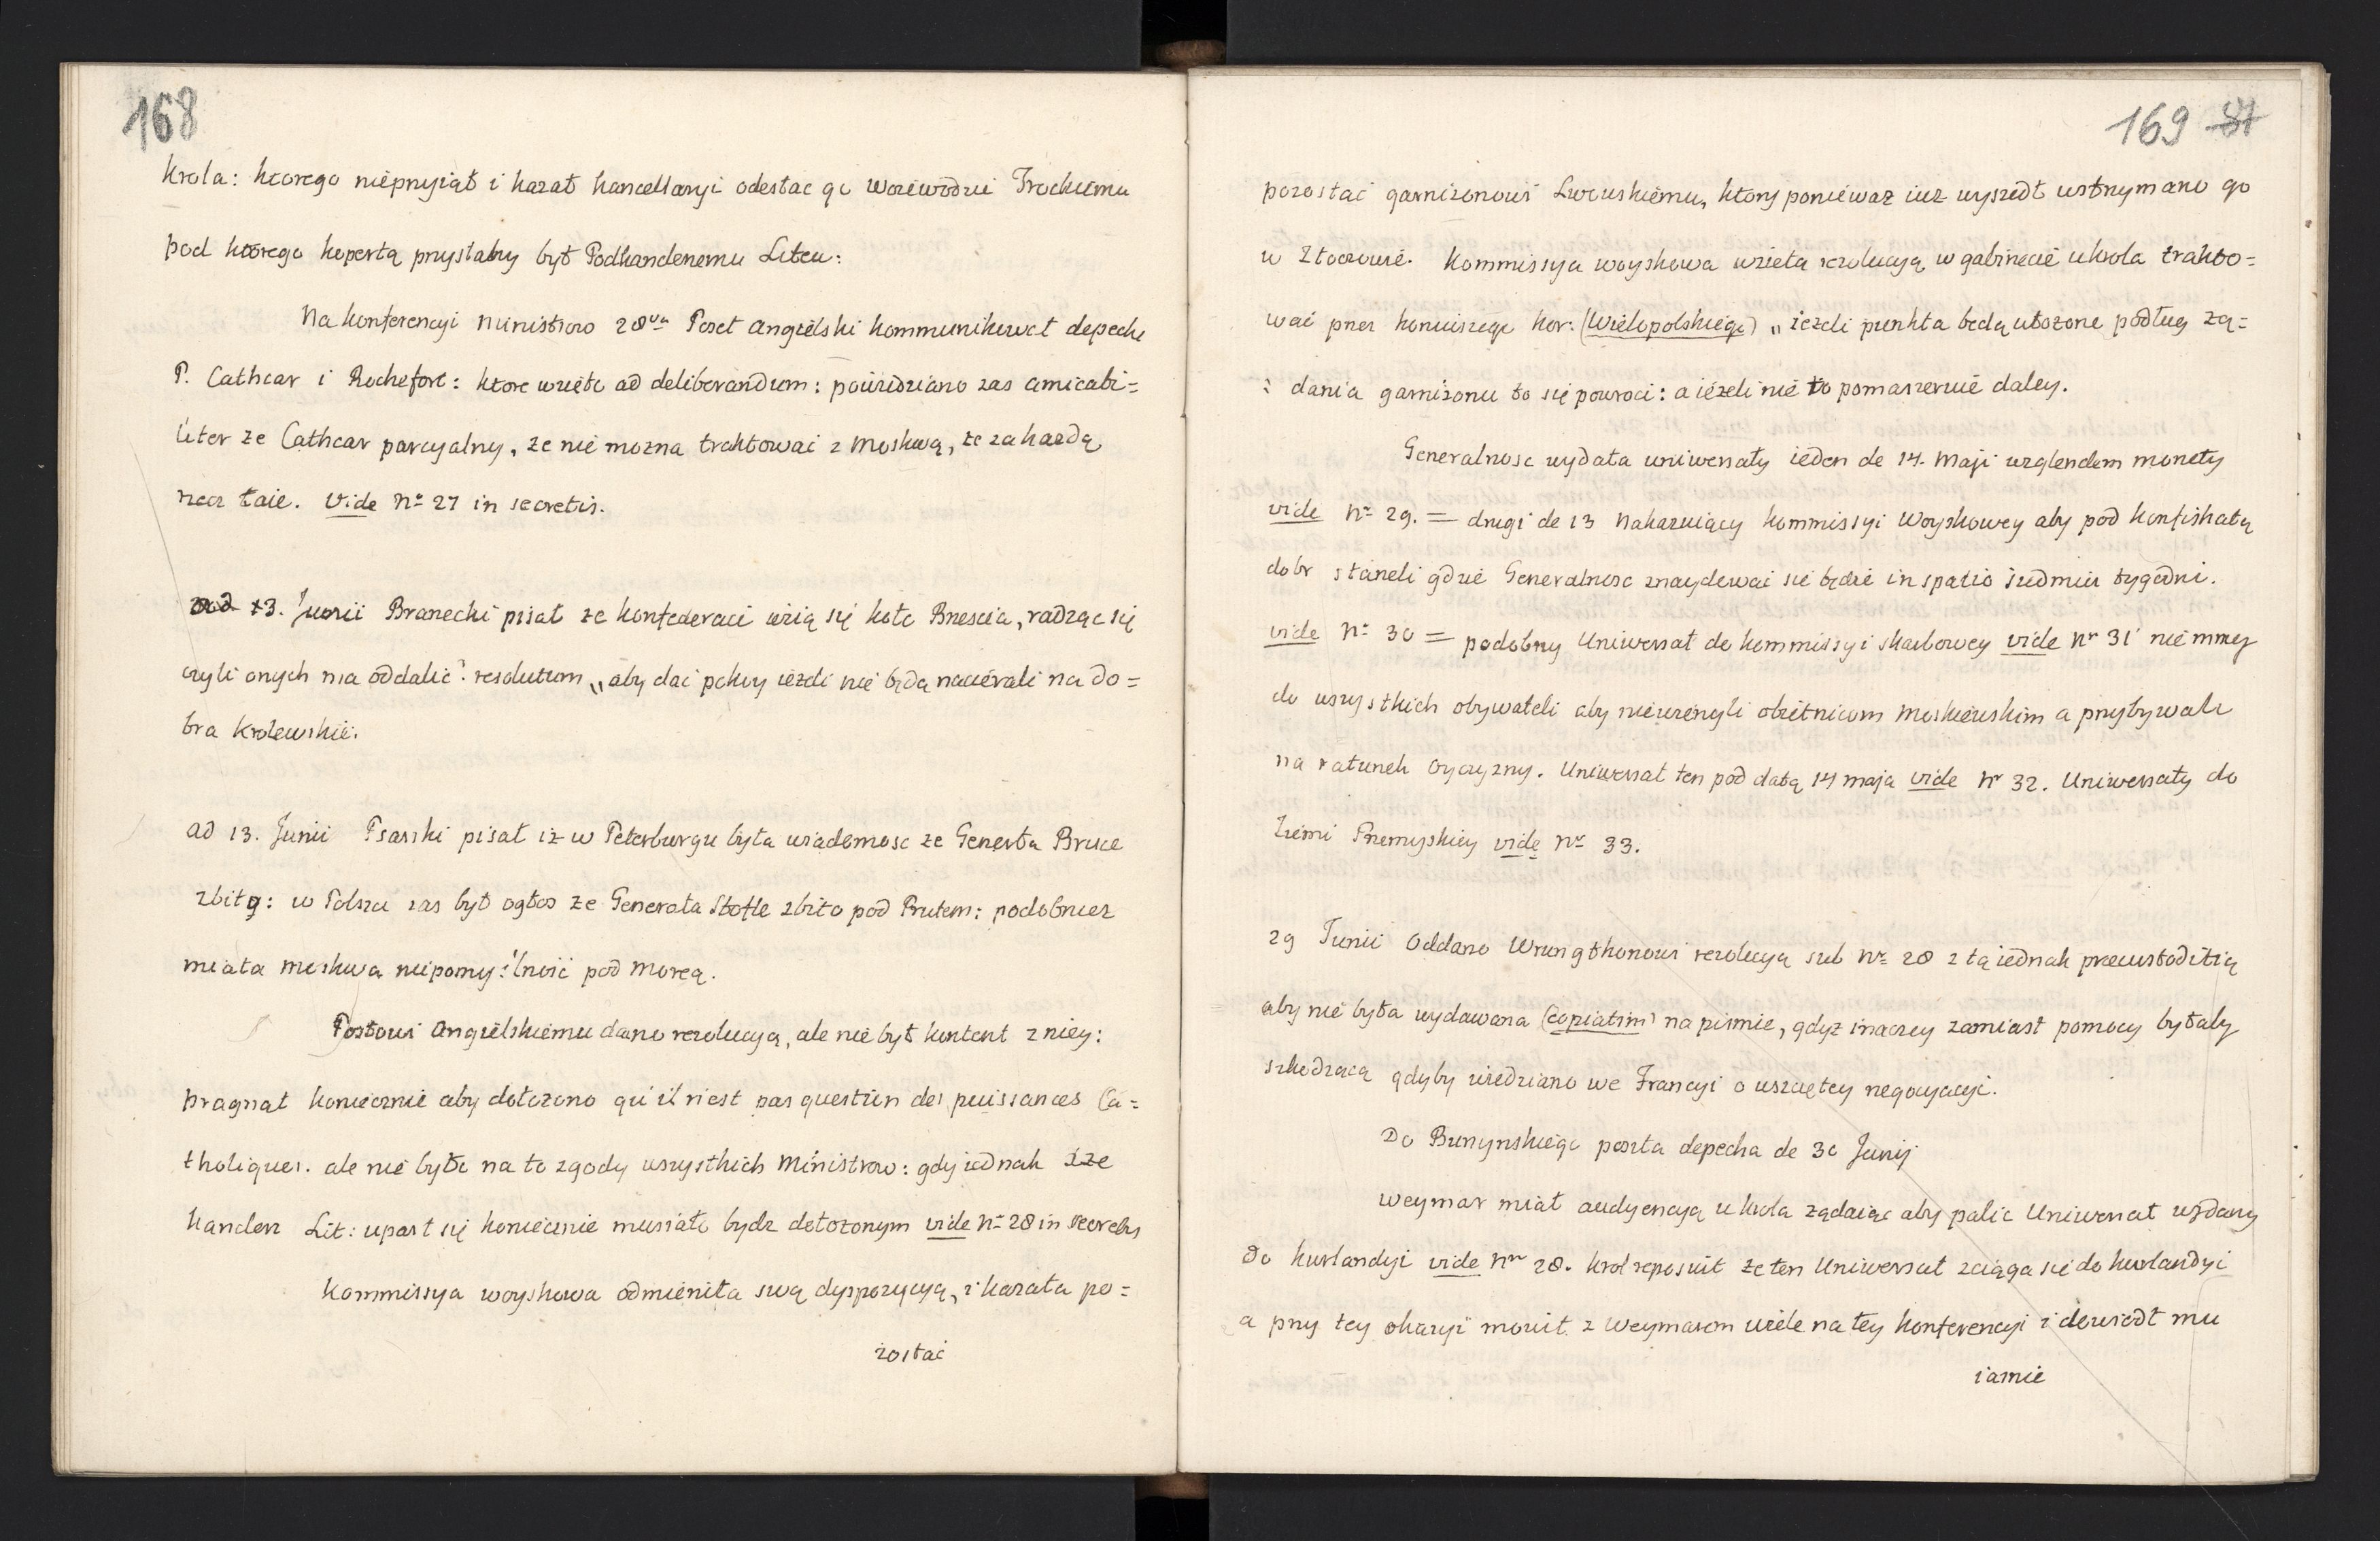 168
Krola: ktorego nieprzyiął i kazał kancellaryi odesłac go woiewodzie Trockiemu
pod ktorego kopertą przysłany był Podkanclerzemu Liteu:
Na konferencyi ministrow 28va Poseł Angielski kommunikował depeche
P. Cathcar i Rochefort: ktore wzięto ad deliberandum: powiedziano zas amicabi=
liter ze Cathcar parcyalny, ze nie mozna traktowac z Moskwą, ze za kazdą
rzecz łaie. Vide No 27 in secretis.
ad 13. Junii Branecki pisał ze konfederaci wiią się koło Brzescia, radząc się
czyli onych ma oddalic? resolutum „aby dac pokuy iezeli nie będą nacierali na do=
bra Krolewskie.
ad 13. Junii Psarski pisał iz w Peterburgu była wiadomosc ze Generła Bruce
zbito: w Polszcze zas był ogłos ze Generała Stofle zbito pod Prutem: podobniez
miała Moskwa niepomyslność pod Moreą.
Posłowi Angielskiemu dano rezolucyą, ale nie był kontent z niey:
pragnał koniecznie aby dołozono qu'il n'est pas question des puissances Ca=
tholiques. ale nie było na to zgody wszystkich Ministrow: gdy iednak Xże
Kanclerz Lit: uparł się koniecznie musiało bydz dołozonym vide No 28 in secretis
Kommissya woyskowa odmieniła swą dyspozycyą, i kazała po=
zostać
169 87
pozostać garnizonowi Lwowskiemu, ktory poniewaz iuz wyszedł wstrzymano go
w Złoczowie. Kommissya woyskowa wzieła rezolucyą w gabinecie u krola trakto=
wać przez koniuszego kor: (Wielopolskiego) „iezeli punkta będą ułozone podług zą=
dania garnizonu to się powroci: a iezeli nie to pomaszeruie daley.
Generalnosc wydała uniwersały ieden de 14. Maji względem monety
vide No 29. = drugi de 13 nakazuiący kommissyi Woyskowey aby pod konfiskatą
dobr staneli gdzie Generalnosc znaydowac się będzie in spatio siedmiu tygodni.
vide No 30 = podobny Uniwersał do kommissyi skarbowey vide Nr 31 niemniey
do wszystkich obywateli aby niewierzyli obietnicom moskiewskim a przybywali
na ratunek oyczyzny. Uniwersał ten pod datą 14 maja vide Nr 32. Uniwersały do
Ziemi Przemyskiey vide Nr 33.
29 Junii Oddano Wrungthonowi rezolucyą sub No 28 z tą iednak precustoditią
aby nie była wydawana (copiatim) na pismie, gdyz inaczey zamiast pomocy byłaby
szkodzącą gdyby wiedziano we Francyi o wszczętey negocyacyi.
Do Burzynskiego poszła depecha de 30 Junij
Weymar miał audyencyą u krola ządaiąc aby palic Uniwersał wydany
do Kurlandyi vide Nro 28. krol reposuit ze ten Uniwersał sciąga się do kurlandyi
a przy tey okazyi mowił z Weymarem wiele na tey konferencyi i dowiodł mu
iasnie